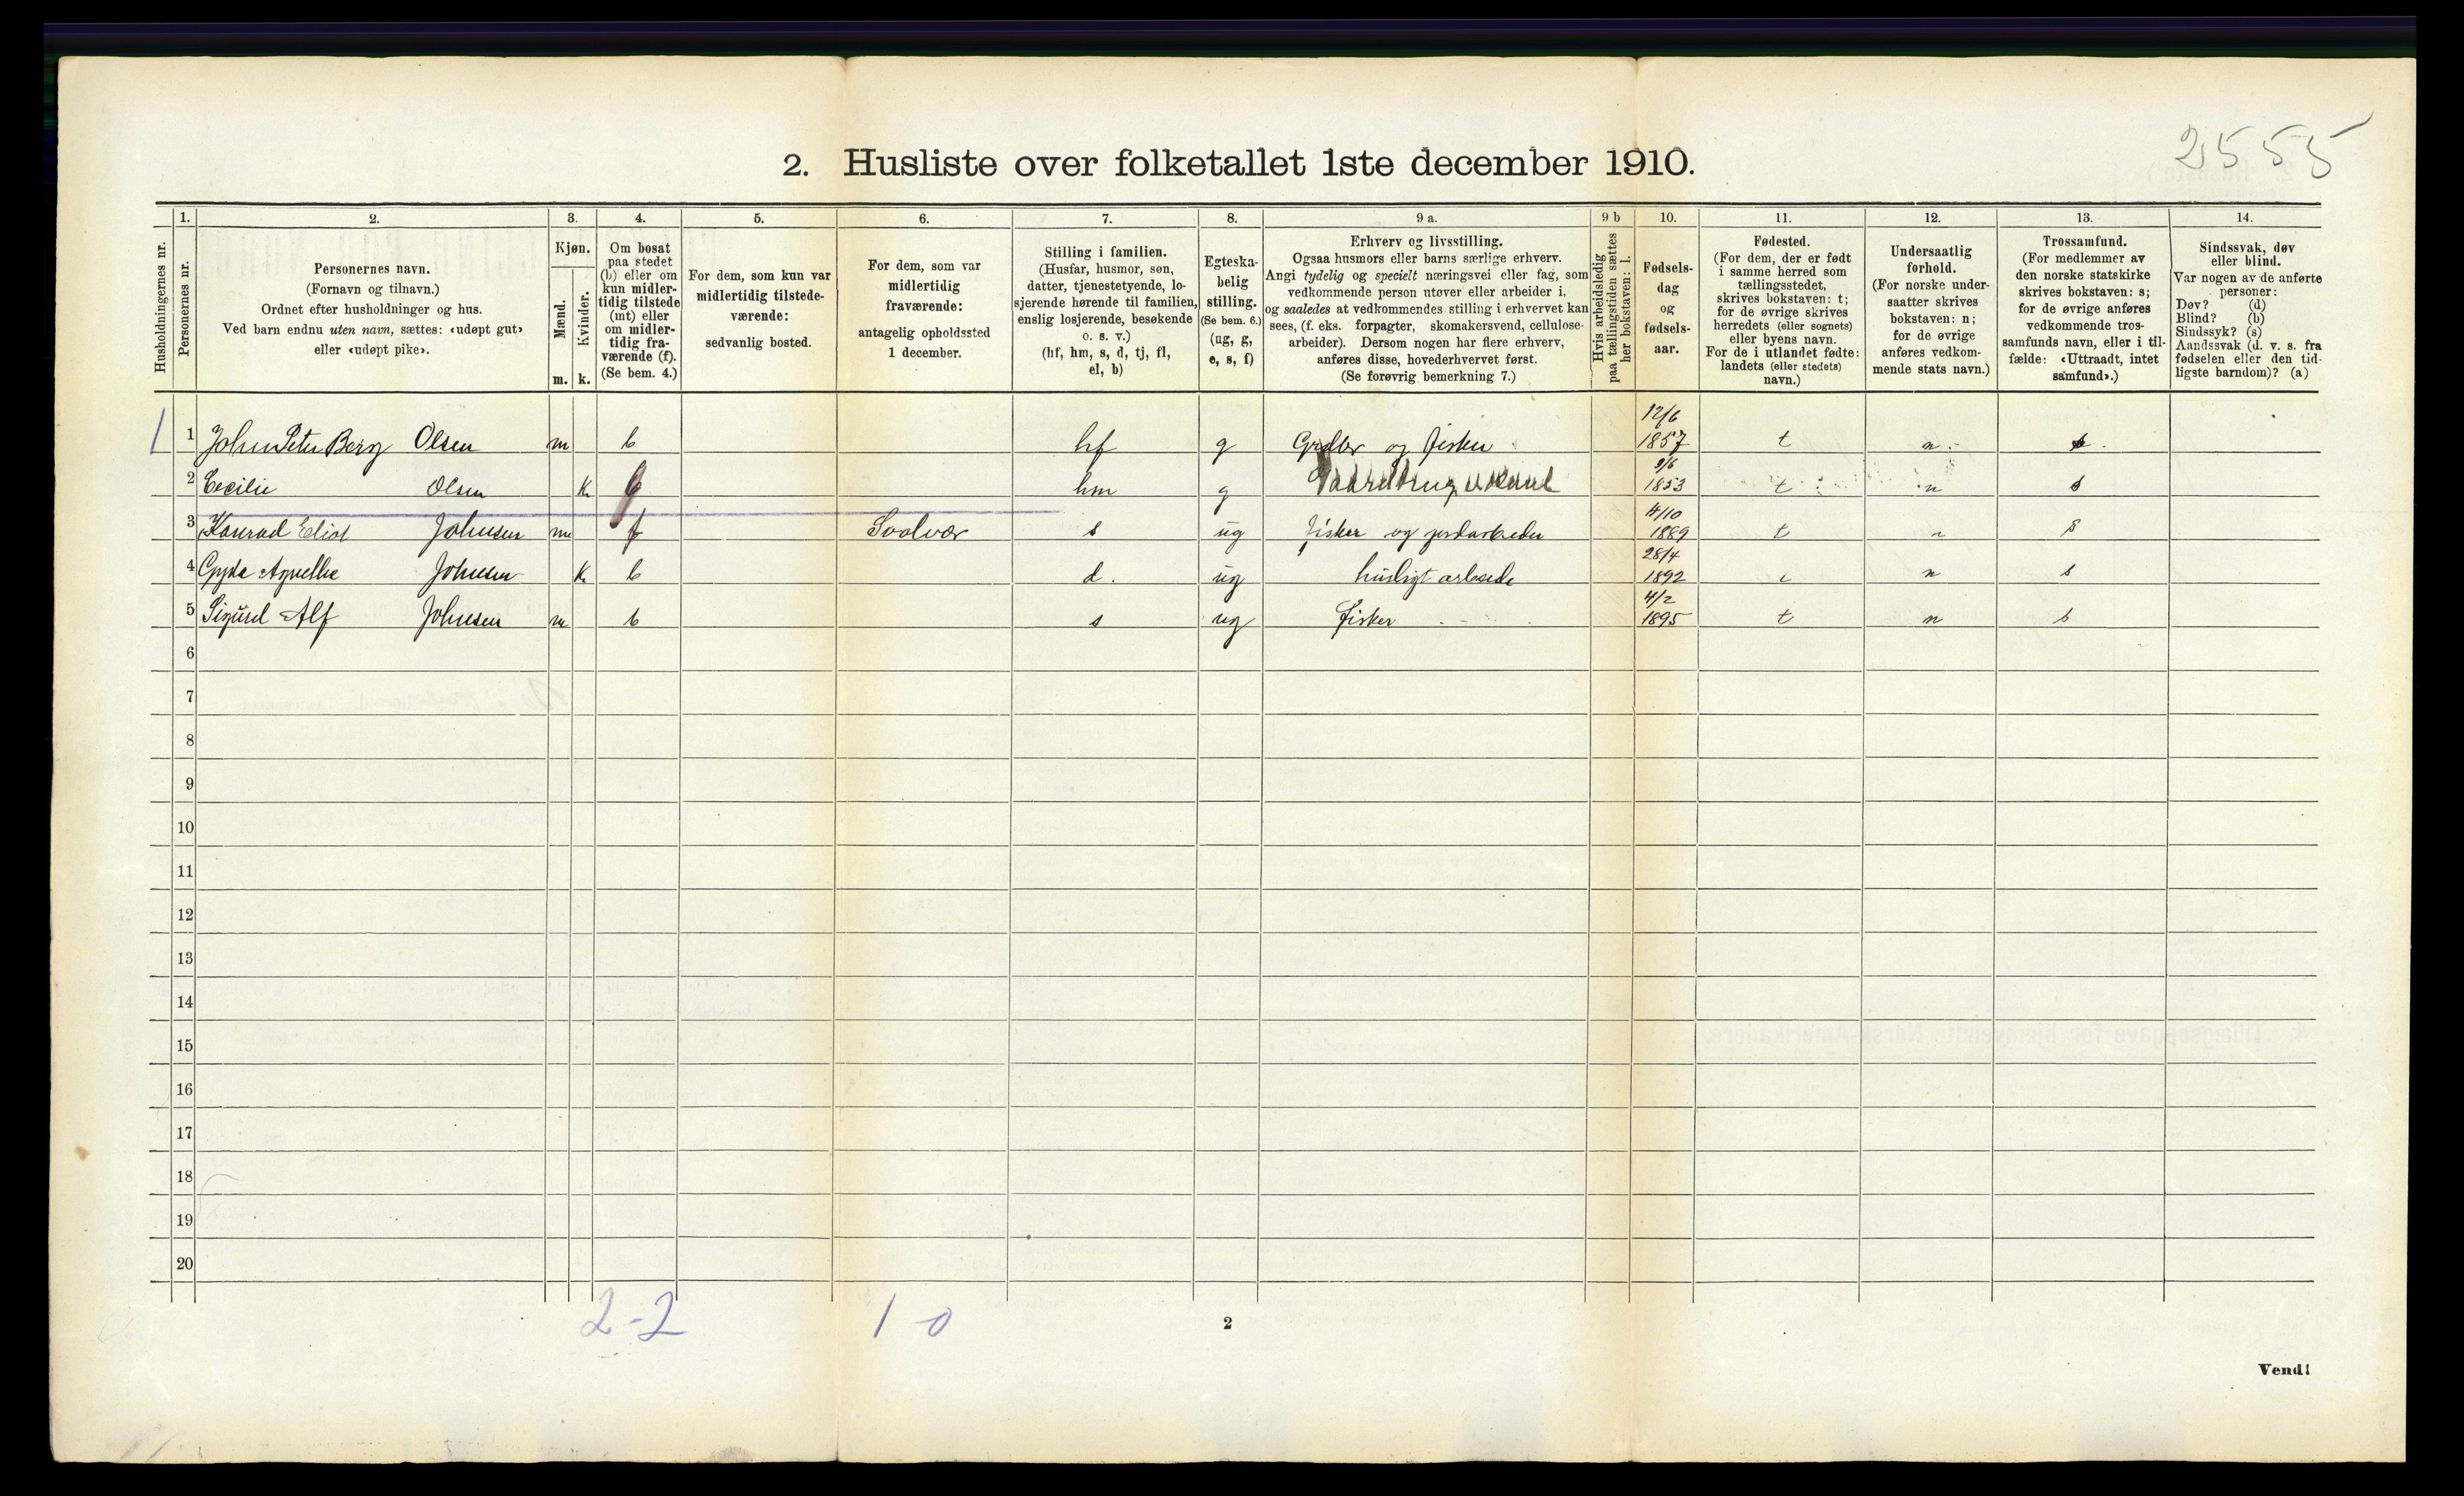 2555
2. Husliste over folketallet 1ste december 1910.
Husholdningernes nr.
1. Personernes nr.
2. Personernes navn. (Fornavn og tilnavn.) Ordnet efter husholdninger og hus. Ved barn endnu uten navn, sættes: «udøpt gut» eller «udøpt pike».
3. Kjøn. Mænd. m. Kvinder. k.
4. Om bosat paa stedet (b) eller om kun midlertidig tilstede (mt) eller om midlertidig fraværende (f). (Se bem. 4.)
5. For dem, som kun var midlertidig tilstedeværende: sedvanlig bosted.
6. For dem, som var midlertidig fraværende: antagelig opholdssted 1 december.
7. Stilling i familien. (Husfar, husmor, søn, datter, tjenestetyende, losjerende hørende til familien, enslig losjerende, besøkende o. s. v.) (hf, hm, s, d, tj, fl, el, b)
8. Egteskabelig stilling. (Se bem. 6.) (ug, g, e, s, f)
9 a. Erhverv og livsstilling. Ogsaa husmors eller barns særlige erhverv. Angi tydelig og specielt næringsvei eller fag, som vedkommende person utøver eller arbeider i, og saaledes at vedkommendes stilling i erhvervet kan sees, (f. eks. forpagter, skomakersvend, cellulosearbeider). Dersom nogen har flere erhverv, anføres disse, hovederhvervet først. (Se forøvrig bemerkning 7.)
9 b Hvis arbeidsledig paa tællingstiden sættes her bokstaven: l.
10. Fødselsdag og fødselsaar.
11. Fødested. (For dem, der er født i samme herred som tællingsstedet, skrives bokstaven: t; for de øvrige skrives herredets (eller sognets) eller byens navn. For de i utlandet fødte: landets (eller stedets) navn.)
12. Undersaatlig forhold. (For norske undersaatter skrives bokstaven: n; for de øvrige anføres vedkommende stats navn.)
13. Trossamfund. (For medlemmer av den norske statskirke skrives bokstaven: s; for de øvrige anføres vedkommende trossamfunds navn, eller i tilfælde: «Uttraadt, intet samfund».)
14. Sindssvak, døv eller blind. Var nogen av de anførte personer: Døv? (d) Blind? (b) Sindssyk? (s) Aandssvak (d. v. s. fra fødselen eller den tidligste barndom)? (a)
1 1 John Peter Berg Olsen m b hf g og fisker 12/6 1857 t n s
2 Cecilie Olsen k b hm g 9/6 1853 t n s
3 Konrad Johnsen m f Svolvær s ug fisker og jordarbeider 4/10 1889 t n s
4 Gyda Johnsen k b d. ug husligt arbeide 28/4 1892 t n s
5 Sigurd Alf Johnsen m b s ug Fisker 4/2 1895 t n s
6
7
8
9
10
11
12
13
14
15
16
17
18
19
20
2-2 1 0
2
Vend!